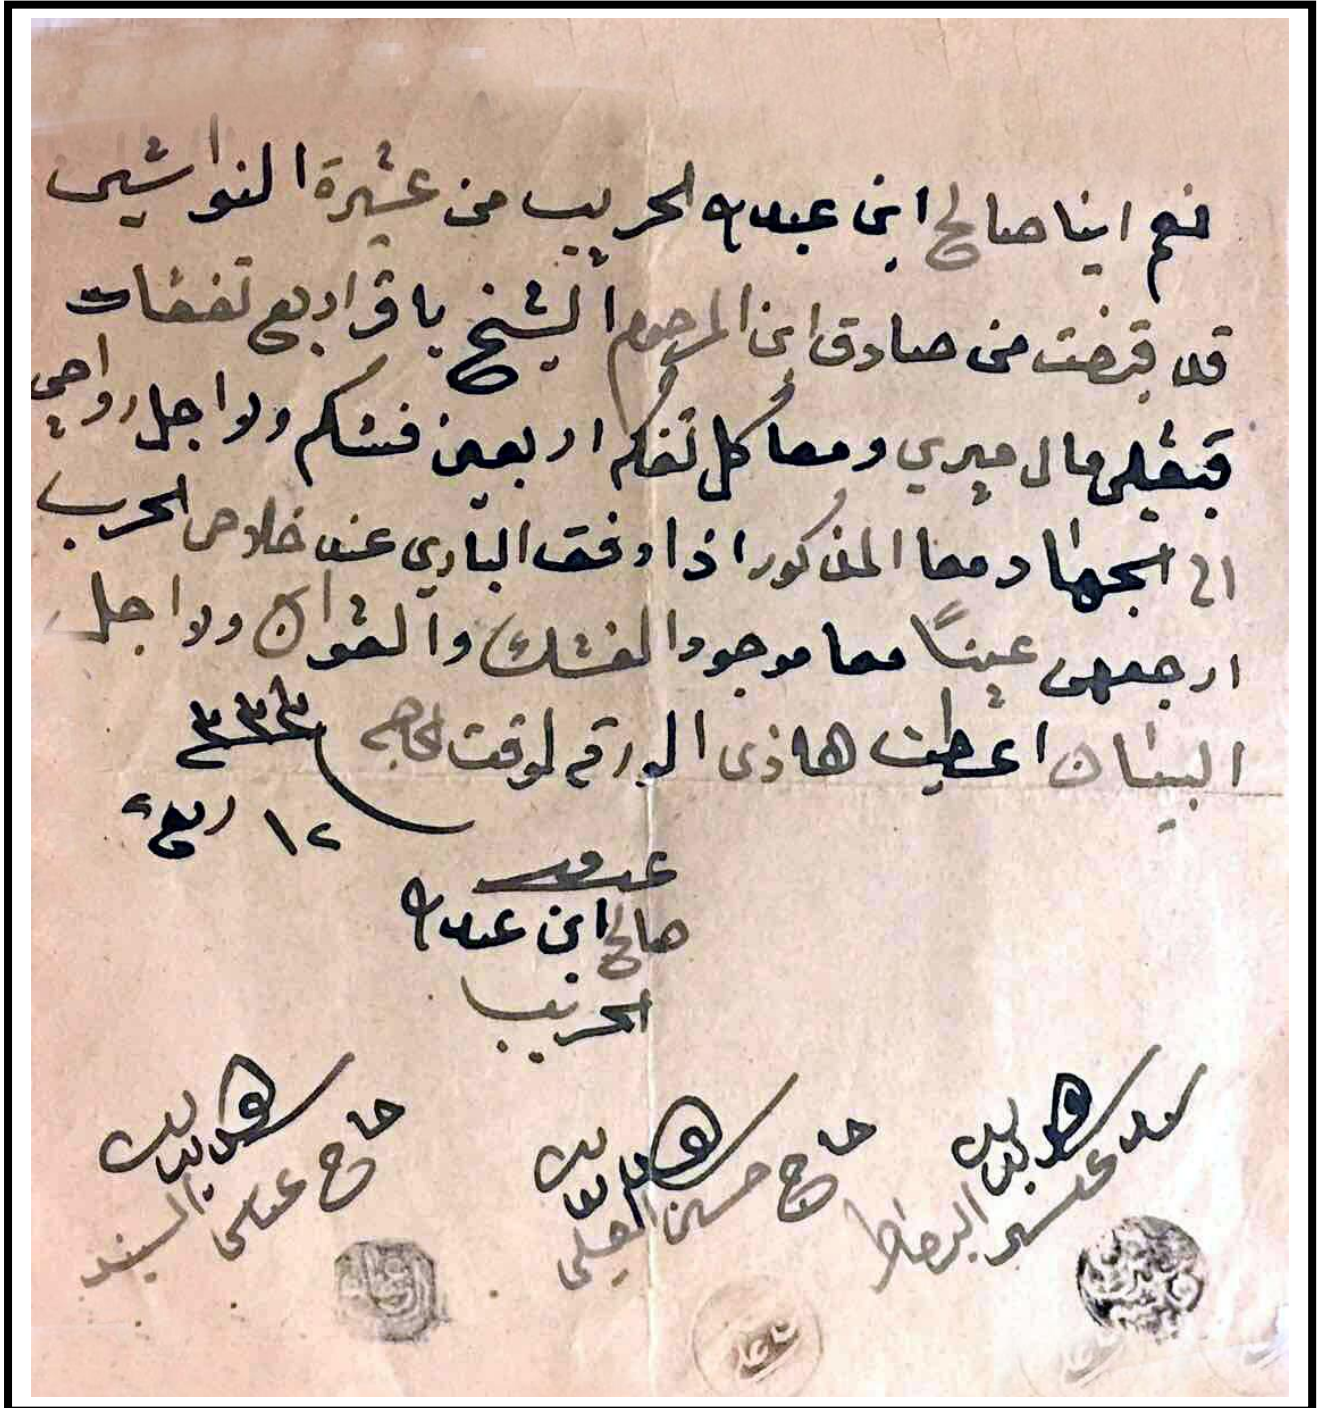 نعم اينا صالح ابن عبدالله الحريب من عشيرة النواشي
قد قبضت من صادق ابن المرحوم الشيخ باقر اربع تفقات
مال ميري ومعا كل تفكه اربعين فشكه ولاجل رواحي
الى الجهاد معا المذكور اذا وفق الباري عند خلاص الحرب
ارجعهن عيناً معا موجود الفشك والقوان ولاجل
البيان اعطيت هاذي الورقه لوقت الحاجه
٣٣٣
١٢ ربيع
صالح ابن عبدالله
الحريب
شهد بذالك
سيد
شهد بذالك
حاج حسين العلي
شهد بذالك
حاج عباس السند